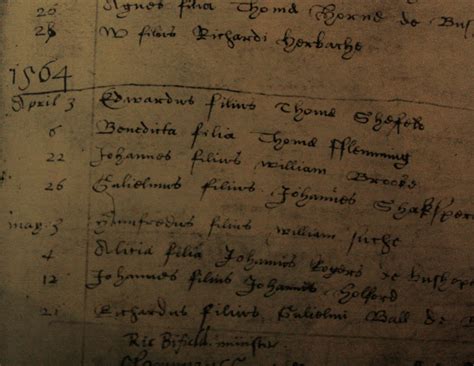 20 Agnes filia Thomæ Thorne de Bus
28 W filius Richardi Herbache
1564
April 3 Edwardus filius Thomæ Shefeld
6 Benedicta filia Thomæ fflemming
22 Johannes filius William Brooke
26 Gulielmus filius Johannes Shakspere
may 3 Humfredus filius William
4 Alicia filia Johannis Rogers de Bushop
12 Johannes filius Johannis Holford
21 Richardus filius Gulielmi Ball de
Ric Bifield minister